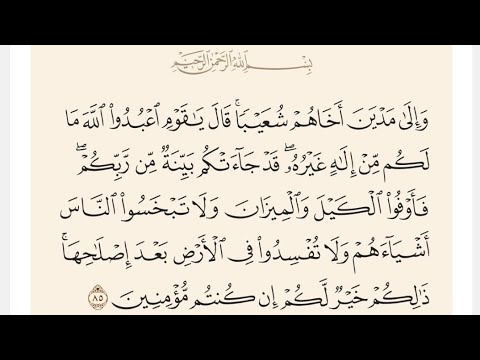 بِسْمِ ٱللَّهِ ٱلرَّحْمَٰنِ ٱلرَّحِيمِ
وَإِلَىٰ مَدْيَنَ أَخَاهُمْ شُعَيْبًاۚ قَالَ يَٰقَوْمِ ٱعْبُدُوا۟ ٱللَّهَ مَا
لَكُم مِّنْ إِلَٰهٍ غَيْرُهُۥۖ قَدْ جَآءَتْكُم بَيِّنَةٌ مِّن رَّبِّكُمْۖ
فَأَوْفُوا۟ ٱلْكَيْلَ وَٱلْمِيزَانَ وَلَا تَبْخَسُوا۟ ٱلنَّاسَ
أَشْيَآءَهُمْ وَلَا تُفْسِدُوا۟ فِى ٱلْأَرْضِ بَعْدَ إِصْلَٰحِهَاۚ
ذَٰلِكُمْ خَيْرٌ لَّكُمْ إِن كُنتُم مُّؤْمِنِينَ ٨٥